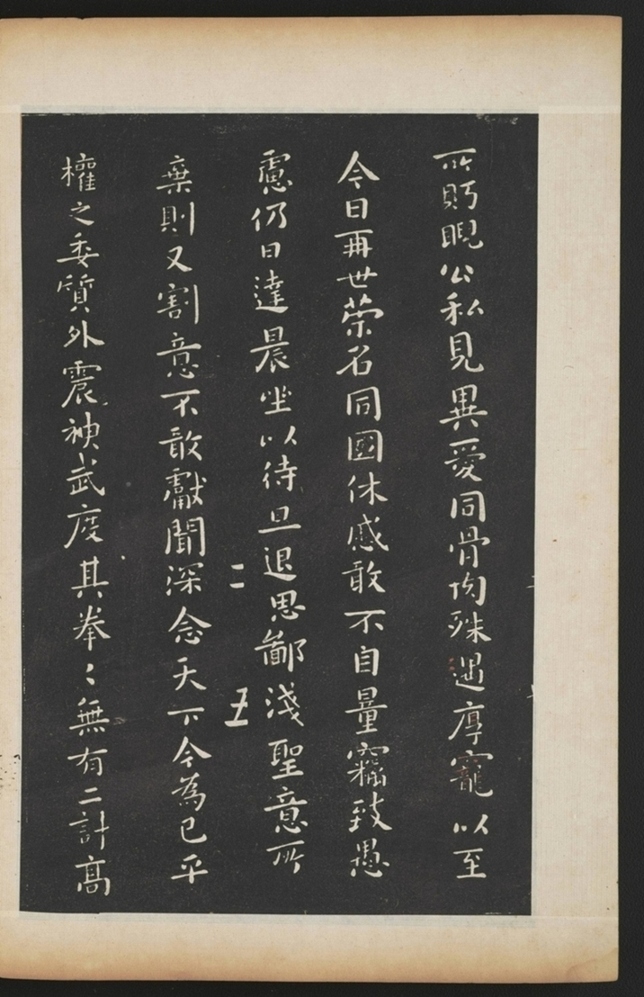 所眄睨公私見異愛同骨肉殊遇厚寵以至
今日再世荣名同國休感敢不自量竊致愚
慮仍日達晨坐以待旦退思鄙淺聖意所
棄則又割意不敢獻聞深念天下今為已平
權之委質外震神武度其拳〻無有二計高
二
五